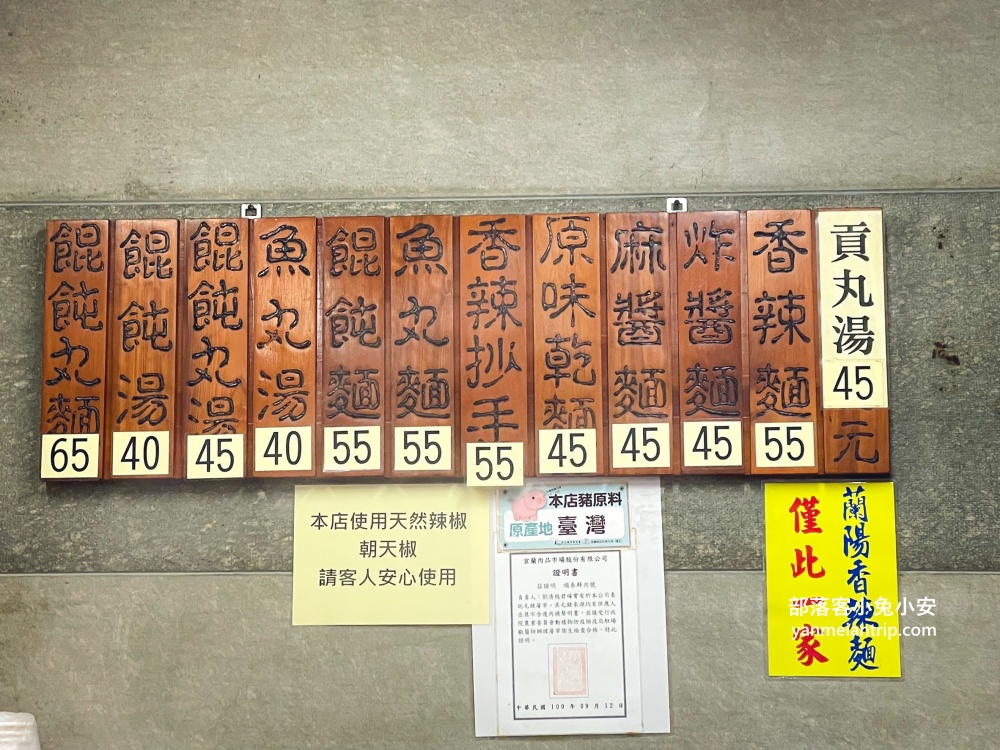 貢丸湯
45
元
香辣麵
55
炸醬麵
45
麻醬麵
45
原味乾麵
45
香辣抄手
55
魚丸麵
55
餛飩麵
55
魚丸湯
40
餛飩丸湯
45
餛飩湯
40
餛飩丸麵
65
本店使用天然辣椒
朝天椒
請客人安心使用
本店豬原料
原產地 臺灣
宜蘭肉品市場股份有限公司
證明書
中華民國 100 年 09 月 12 日
蘭陽香辣麵
僅此一家
部落客小兔小安
yanmeiantrip.com